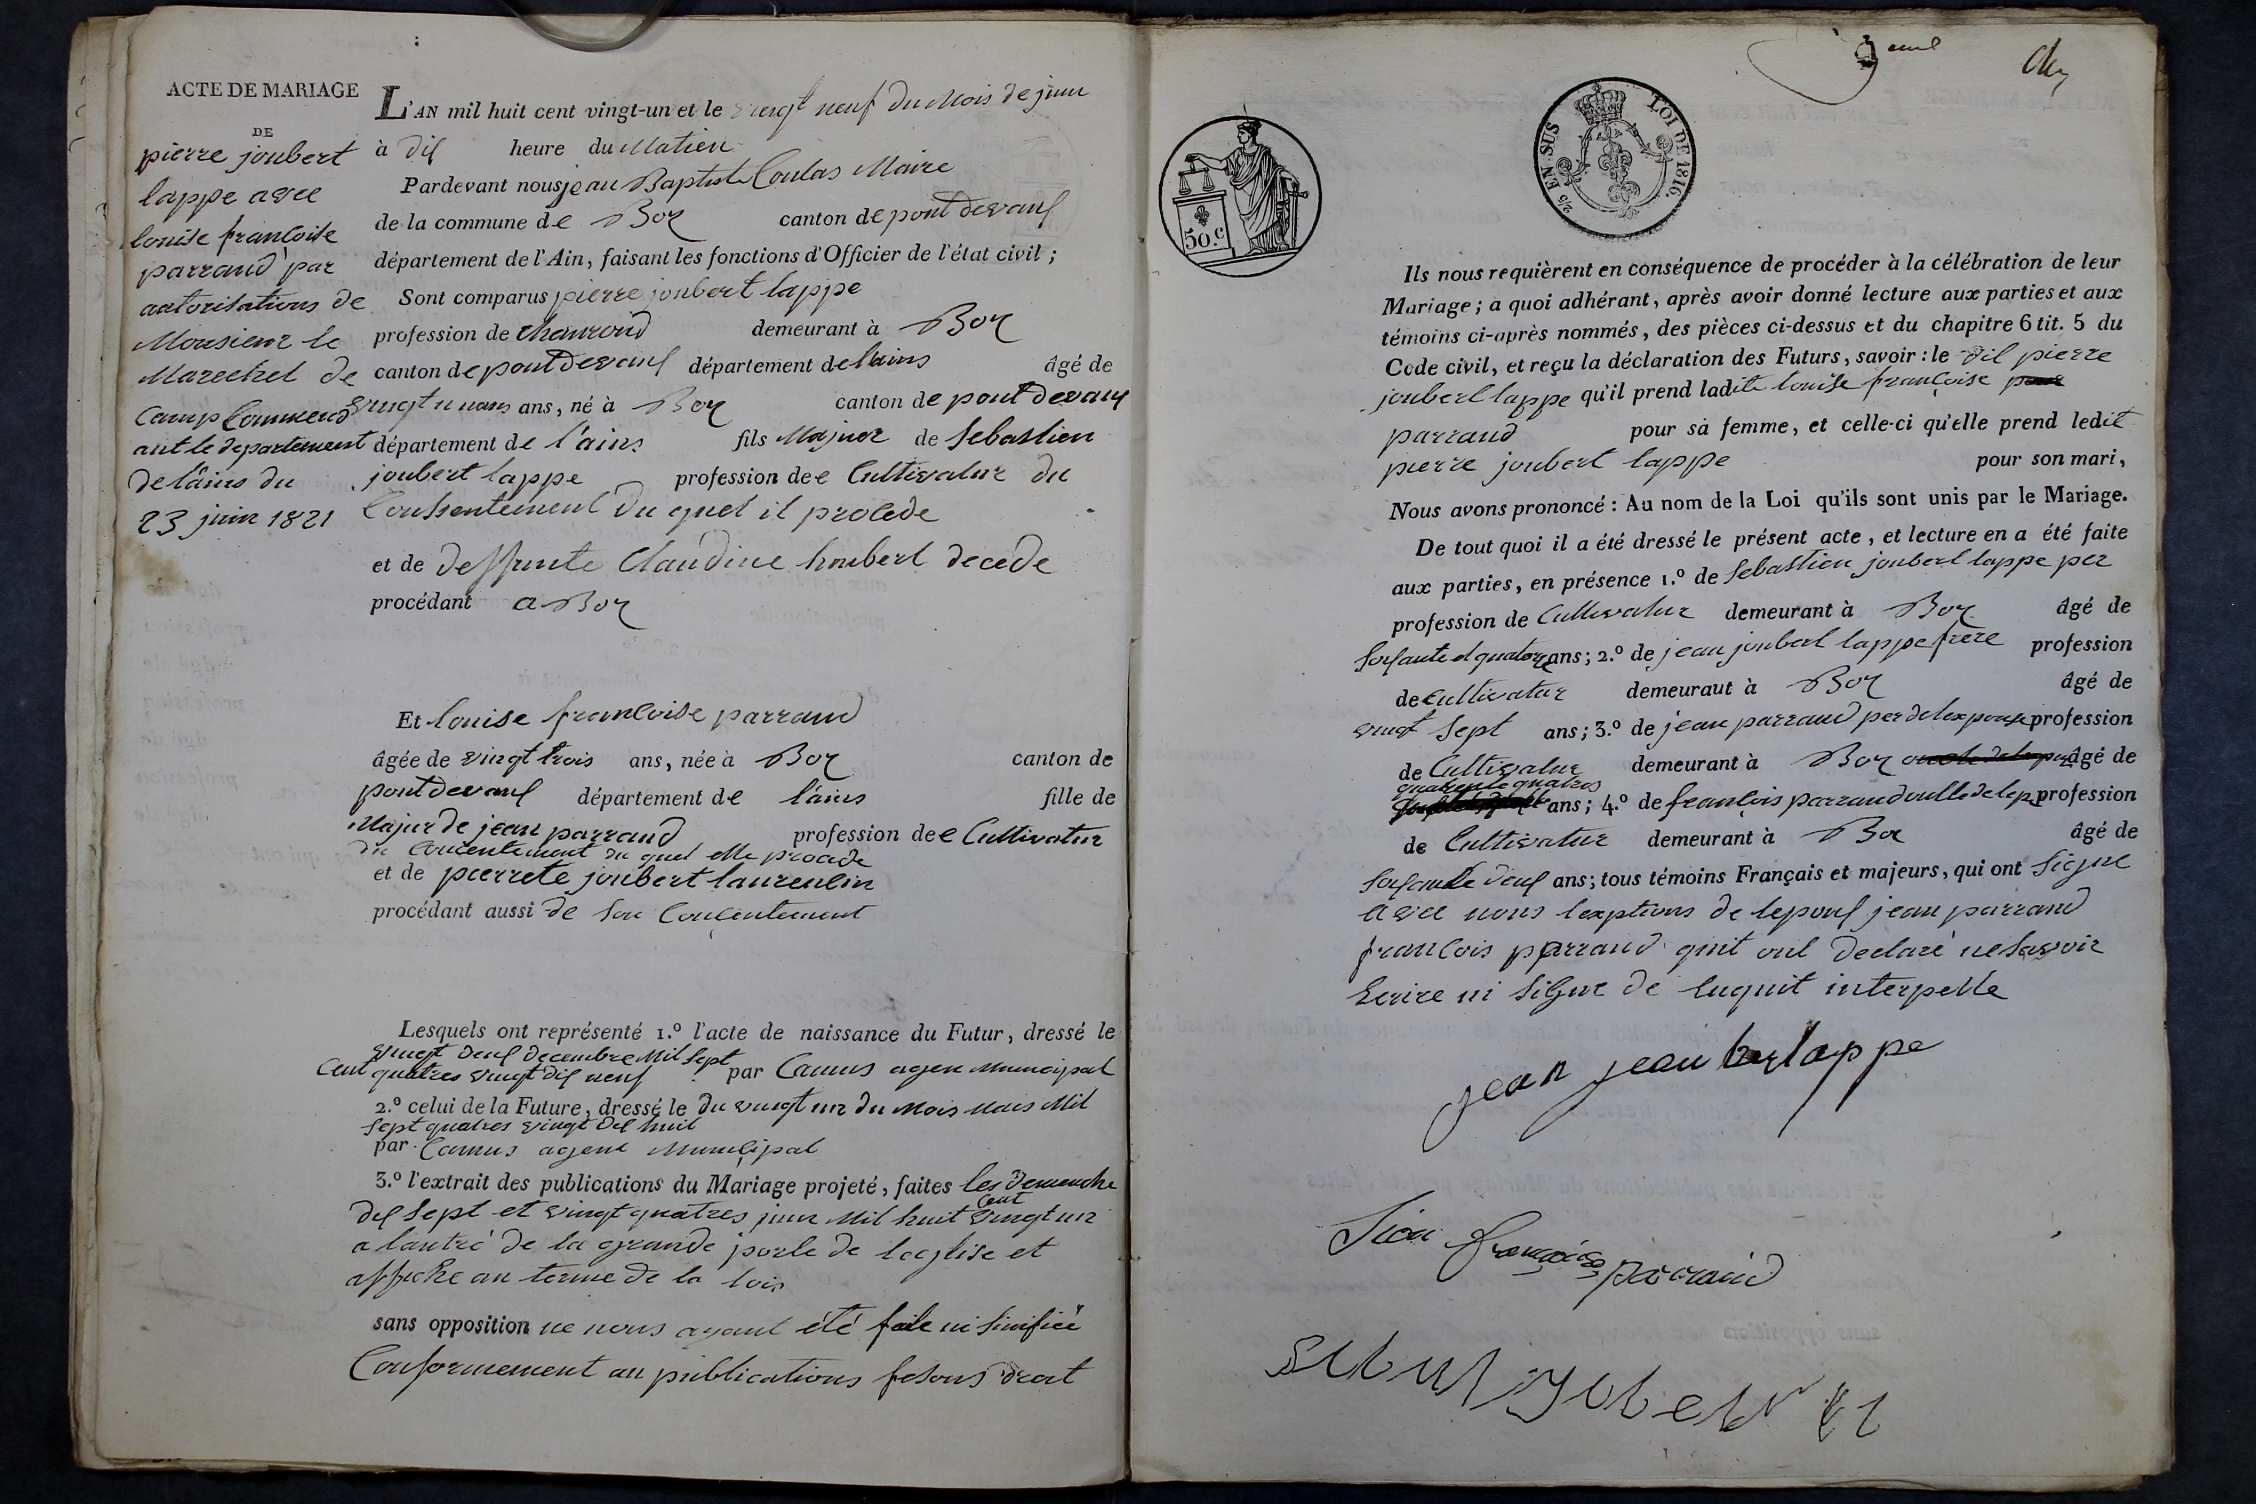 ACTE DE MARIAGE
DE
pierre joubert
lappe avec
louise francoise
parraud par
autorisations de
Monsieur le
Marechel de
Camp Commend
ant le departement
de lâins du
23 juin 1821
L'AN mil huit cent vingt-un et le vingt neuf du Mois de juin
à dix heure du Matien
Pardevant nous jean Baptiste Coulas Maire
de la commune de Boz canton de pont devaux
département de l'Ain, faisant les fonctions d'Officier de l'état civil ;
Sont comparus pierre joubert lappe
profession de demeurant à Boz
canton de pont devaux département de lains âgé de
vingt ans, né à Boz canton de pont devaux
département de l'ains fils Majuor de Sebastien
joubert lappe profession de e Cultivatur du
Consentement du quel il procede
et de deffunte Claudine houbert decede
procédant a Boz
Et louise francoise parraud
âgée de vingt trois ans, née à Boz canton de
pont devaux département de lains fille de
Majur de jean parraud profession de e Cultivatur
du Concentement du quel elle procede
et de pierrete joubert laurenlin
procédant aussi de son Concentement
Lesquels ont représenté 1.º l'acte de naissance du Futur, dressé le
vingt deux decembre Mil Sept
Cent quatres vingt dix neuf par Camus agen Municipal
2.º celui de la Future, dressé le du vingt un du Mois Mars Mil
Sept quatres vingt dix huit
par Camus agent Municipal
3.º l'extrait des publications du Mariage projeté, faites les demenche
dix sept et vingt quatres juin Mil huit Cent vingt un
a lantré de la grande porte de leglise et
affiche au terme de la lois
sans opposition ne nous ayant été faite ni sinifiéé
Conformement au publications fesons droit
2/5 EN SUS
LOI DE 1816.
50.c
Ils nous requièrent en conséquence de procéder à la célébration de leur
Mariage ; a quoi adhérant, après avoir donné lecture aux parties et aux
témoins ci-après nommés, des pièces ci-dessus et du chapitre 6 tit. 5 du
Code civil, et reçu la déclaration des Futurs, savoir : le dit pierre
joubert lappe qu'il prend ladite louise françoise
parraud pour sa femme, et celle-ci qu'elle prend ledit
pierre joubert lappe pour son mari,
Nous avons prononcé : Au nom de la Loi qu'ils sont unis par le Mariage.
De tout quoi il a été dressé le présent acte, et lecture en a été faite
aux parties, en présence 1.º de Sebastien joubert lappe per
profession de Cultivatur demeurant à Boz âgé de
Soisante et quatorze ans ; 2.º de jean joubert lappe frere profession
de Cultivatur demeuraut à Boz âgé de
vingt Sept ans ; 3.º de jean parraud per de lexpouse profession
de Cultivatur demeurant à Boz âgé de
quarente quatres
ans ; 4.º de françois parraud profession
de Cultivatur demeurant à Boz âgé de
Soisante deux ans ; tous témoins Français et majeurs, qui ont Signe
avec nous lexptions de lepoux jean parraud
francois parraud quit ont declaré ne savoir
Ecrire ni Signe de luquit interpelle
jean jeau berlappe
françoise parraud